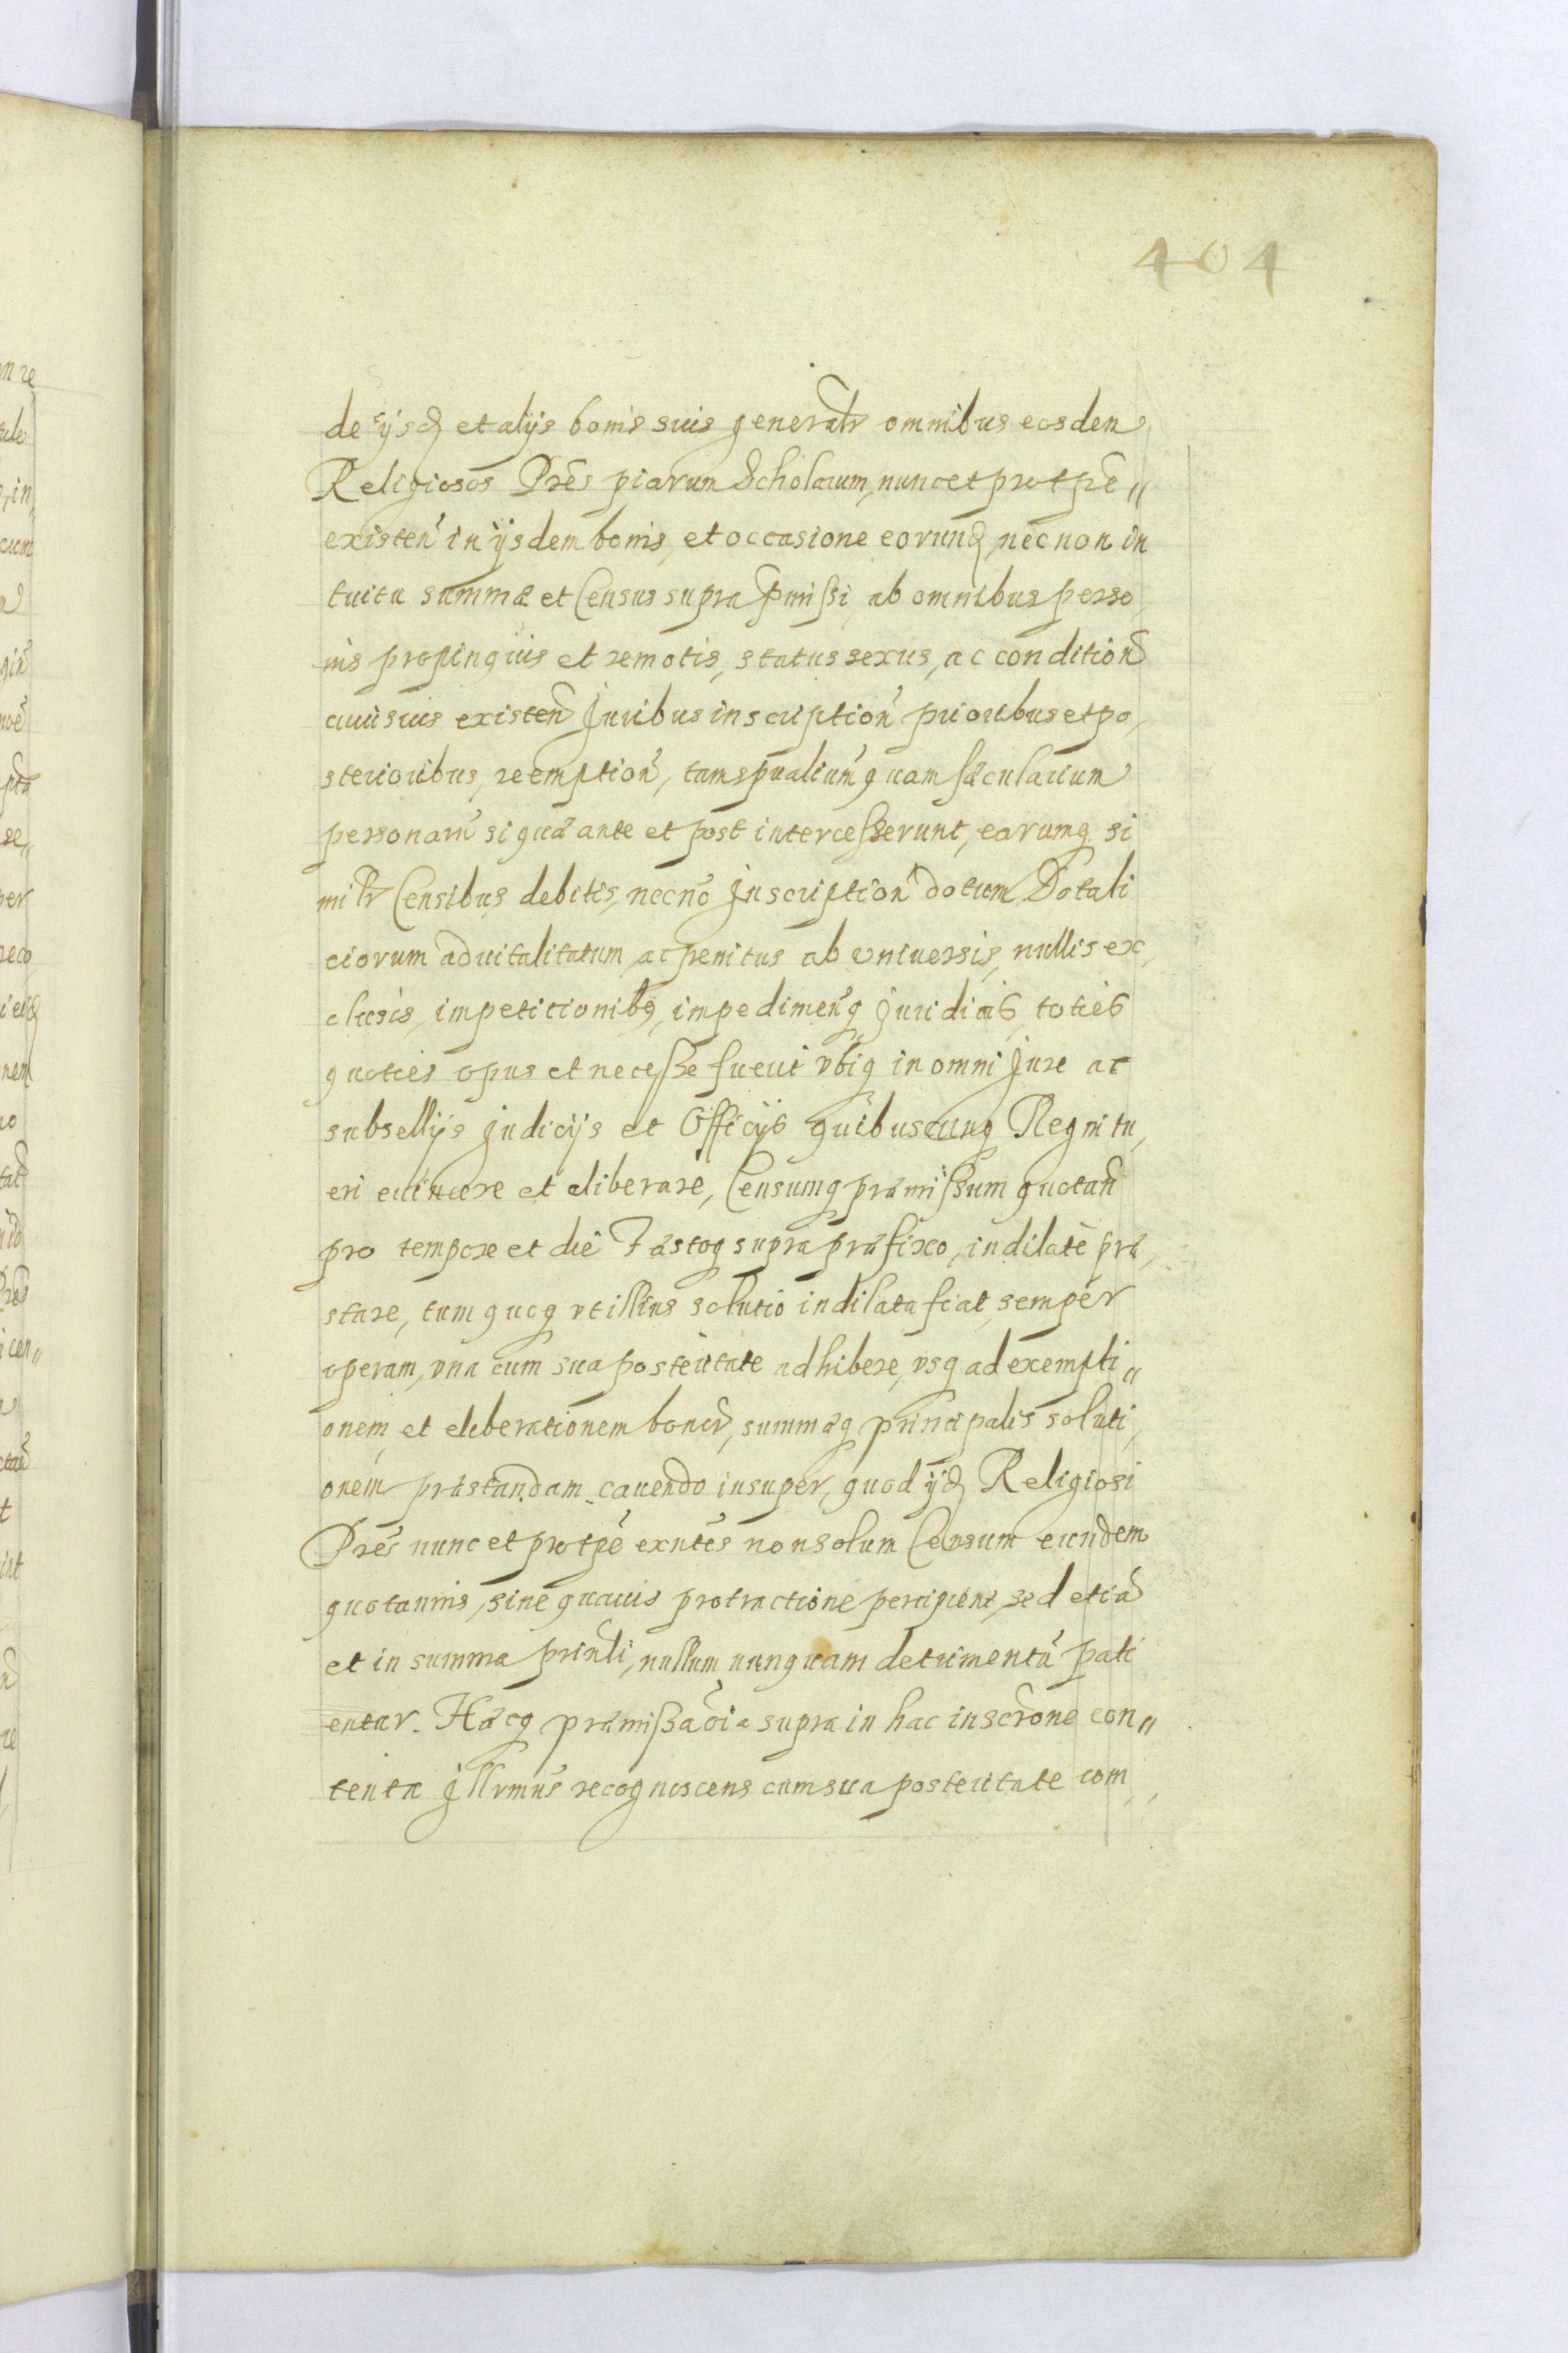 404
de ijsd et alijs bonis suis generalr omnibus eosdem
Religiosos Pres piarum Scholarum, nunc et pro tpe
existen in ijsdem bonis, et occasione eorund, nec non in
tuitu summæ et Census supra pmissi, ab omnibus perso
nis propinquis et remotis, status sexus, ac condition
cuiusuis existen Juribus inscription prioribus et po,
sterioribus, reemption, tam spualium quam sæcularium
personarum si quæ ante et post intercesserunt, earumq si
milr Censibus debitis, necnō Inscription dotum Dotali
ciorum aduitalitatum ac penitus ab vniuersis, nullis ex,
clusis, impeticionibq, impedimenq Juridicis, toties
quoties opus et necesse fuerit vbiq in omni Jure ac
subsellijs Judicijs et Officijs quibuscunq Regni tu,
eri euincere et eliberare, Censumq præmissum quotan
pro tempore et die Fæstoq supra præfixo, indilatè præ,
stare, tum quoq vt illius solutio indilata fiat, semper
operam, vna cum sua posteritate adhibere, vsq ad exempti„
onem et eliberationem bonor, summæq principalis soluti,
onem præstandam cauendo insuper, quod ijd Religiosi
Pres nunc et pro tpē exntes non solum Censum eundem
quotannis, sine quauis protractione percipient, sed etiā
et in summa prinli, nullum nunquam detrimentū pati
entur. Hæcq præmissa oia supra in hac inscrone con„
tenta Jllrmus recognoscens cum sua posteritate com,,